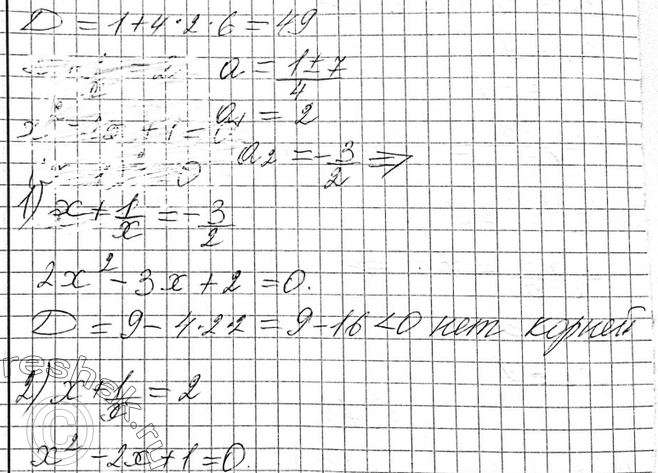 D = 1 + 4·2·6 = 49
a = (1±7)/4
a₁ = 2
a₂ = -3/2 ⇒
1) x + 1/x = -3/2
2x² - 3x + 2 = 0.
D = 9 - 4·2·2 = 9 - 16 < 0 нет корней
2) x + 1/x = 2
x² - 2x + 1 = 0.